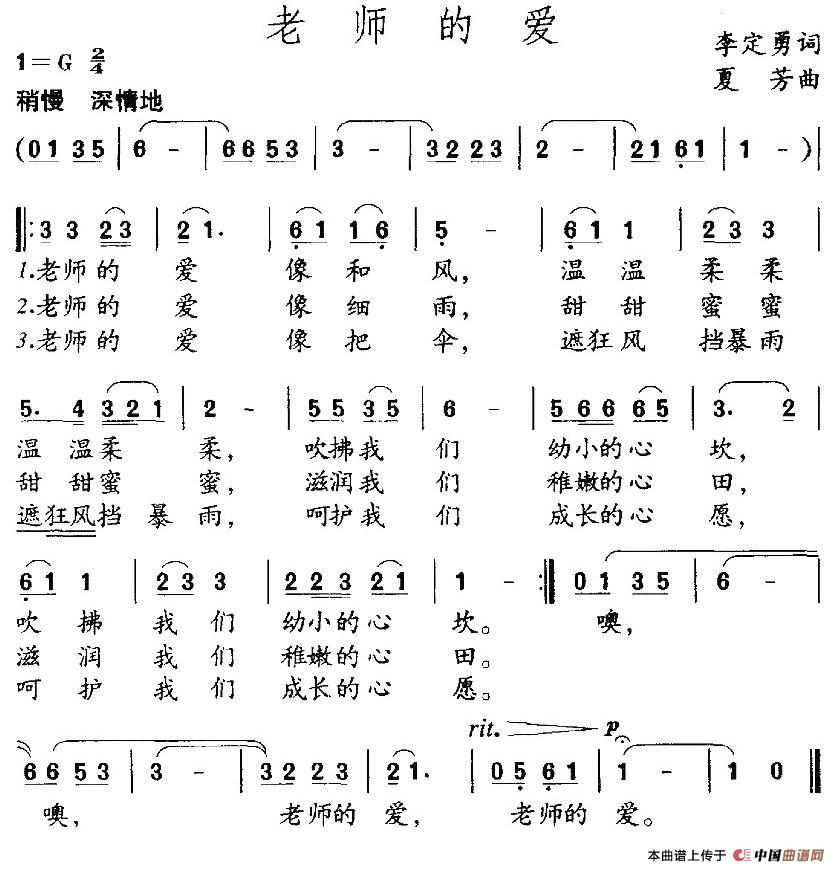 老师的爱
1=G 2/4
李定勇词
夏 芳曲
稍慢 深情地
(01 35 | 6 - | 66 53 | 3 - | 32 23 | 2 - | 21 61 | 1 - )|
‖: 3 3 23 | 2 1. | 61 16 | 5 - | 61 1 | 23 3 |
1.老师的 爱 像 和 风, 温 温 柔 柔
2.老师的 爱 像 细 雨, 甜 甜 蜜 蜜
3.老师的 爱 像 把 伞, 遮狂风 挡暴雨
5. 4 321 | 2 - | 55 35 | 6 - | 566 65 | 3. 2 |
温 温柔 柔, 吹拂我 们 幼小的心 坎,
甜 甜蜜 蜜, 滋润我 们 稚嫩的心 田,
遮狂风挡 暴 雨, 呵护我 们 成长的心 愿,
61 1 | 23 3 | 223 21 | 1 - :‖ 01 35 | 6 - |
吹 拂 我 们 幼小的心 坎。 噢,
滋 润 我 们 稚嫩的心 田。
呵 护 我 们 成长的心 愿。
rit. p
66 53 | 3 - | 32 23 | 2 1. | 05 61 | 1 - | 1 0 ‖
噢, 老师的 爱, 老师的 爱。
本曲谱上传于 中国曲谱网